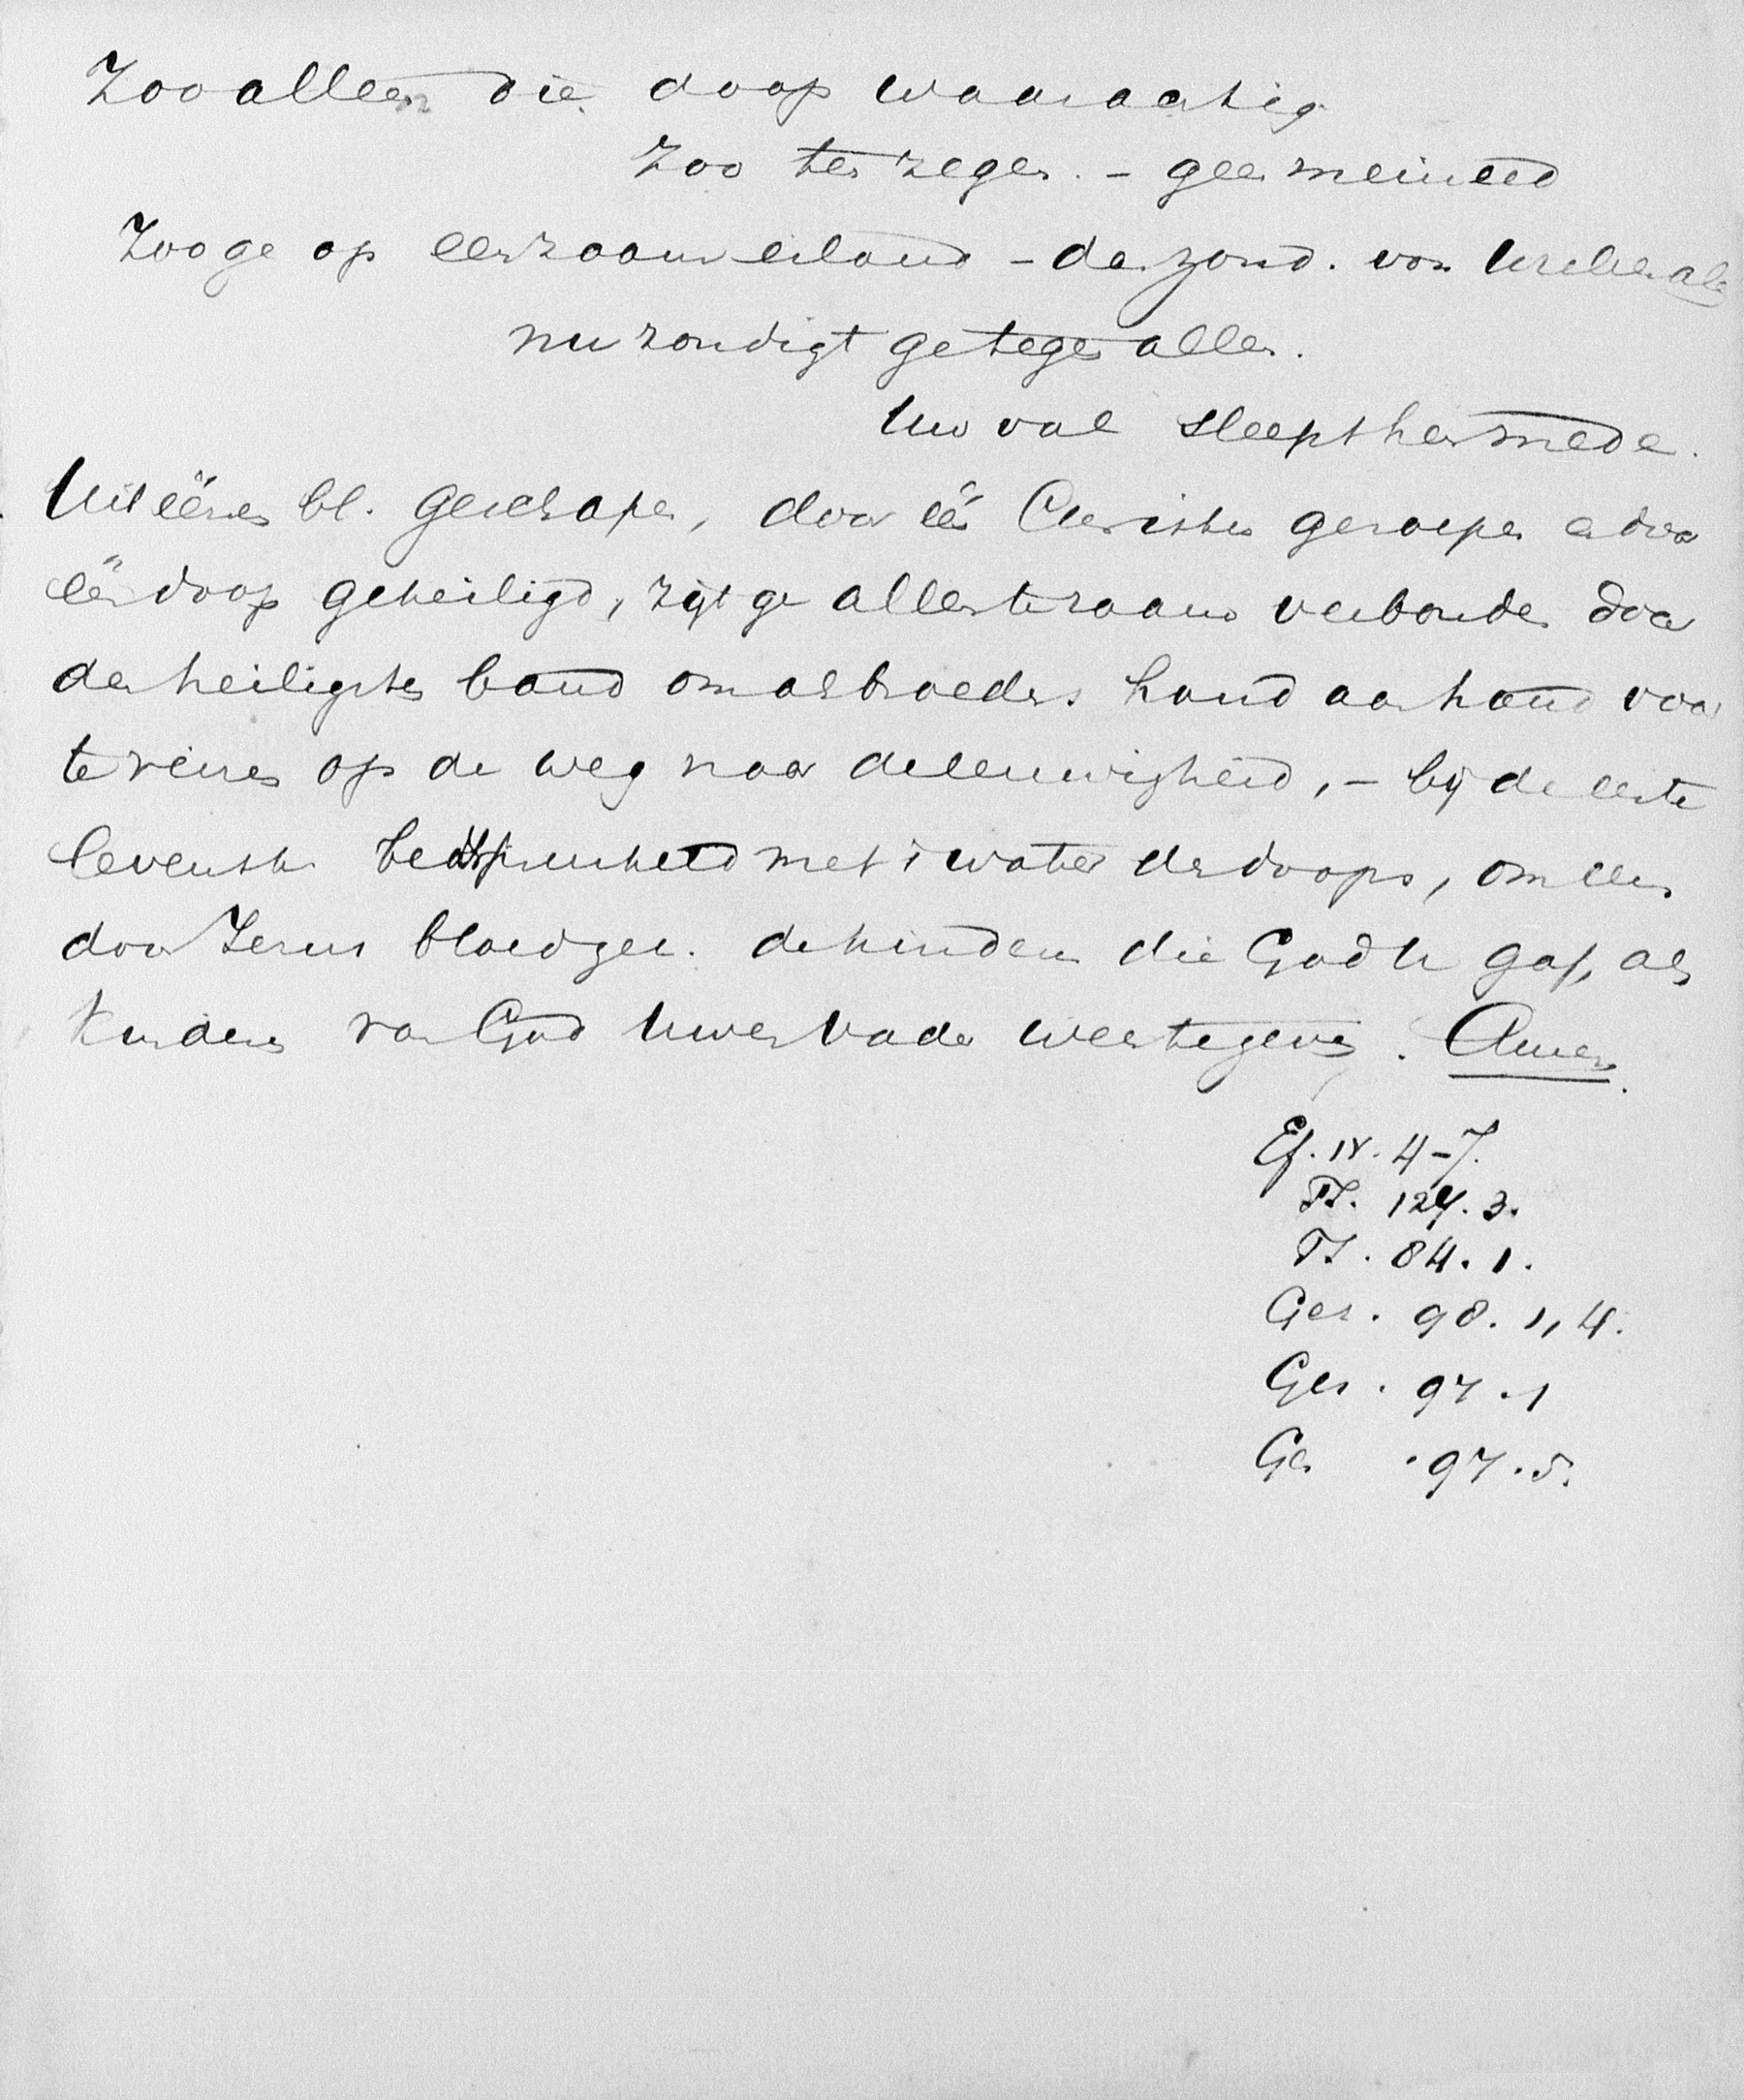 Zoo alleen die doop waarachtig
Zoo ten zegen. – geen meineed
Zoo ge op eenzaam eiland – dan zond. voor Uzelven alleen
nu zondigt ge tegen allen.
Uw val sleept hen mede.
Uit éénen bl. geschapen, door één Christus geroepen en door
één doop geheiligd, zijt ge allen te zaam verbonden door
den heiligsten band om als broeders hand aan hand voor
te reizen op de weg naar de eeuwigheid, – bij de eerste
levenst. besprenkeld met 't water des doops, om eens
door Jezus bloed ger. de kinderen die God U gaf, als
kinderen van God Uwen Vader weer te geven. Amen.
Ef. IV. 4–7.
Ps. 124. 3.
Ps. 84. 1.
Gez. 98. 1, 4.
Gez. 97. 1
Gez. 97. 5.